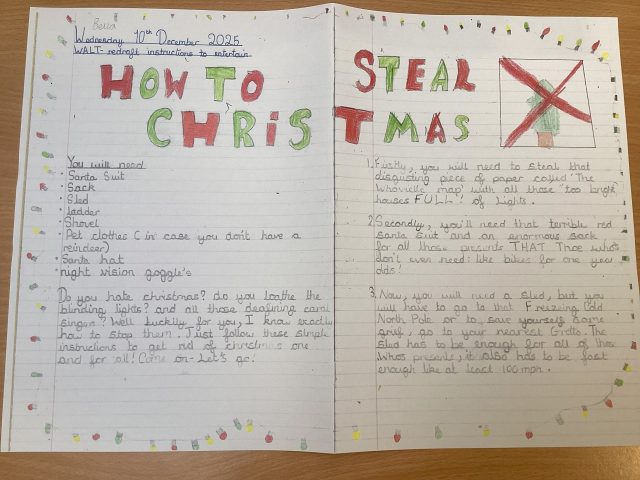 Bella
Wednesday 10th December 2025.
WALT- redraft instructions to entertain
HOW TO STEAL
CHRISTMAS
You will need
· Santa Suit
· Sack
· Sled
· ladder
· Shovel
· Pet clothes (in case you don't have a
reindeer)
· Santa hat
· night vision goggle's
Do you hate christmas? do you loathe the
blinding lights? and all those deafining carol
singers? Well luckily for you, I know exactly
how to stop them. Just follow these simple
instructions to get rid of christmas one
and for all! Come on- Let's go!
1. Firstly, you will need to steal that
disgusting piece of paper called 'The
Whoville map' with all those "too bright
houses FULL"! of Lights.
2. Secondly, you'll need that terrible red
santa suit and an enormous sack
for all those presents THAT Those who's
don't even need: like bikes for one year
olds!
3. Now, you will need a sled, but you
will have to go to that Freezing Cold
North Pole or to save yourself some
grief, go to your nearest Grotto. The
sled has to be enough for all of those
Whos presents, it also has to be fast
enough like at least 100mph.